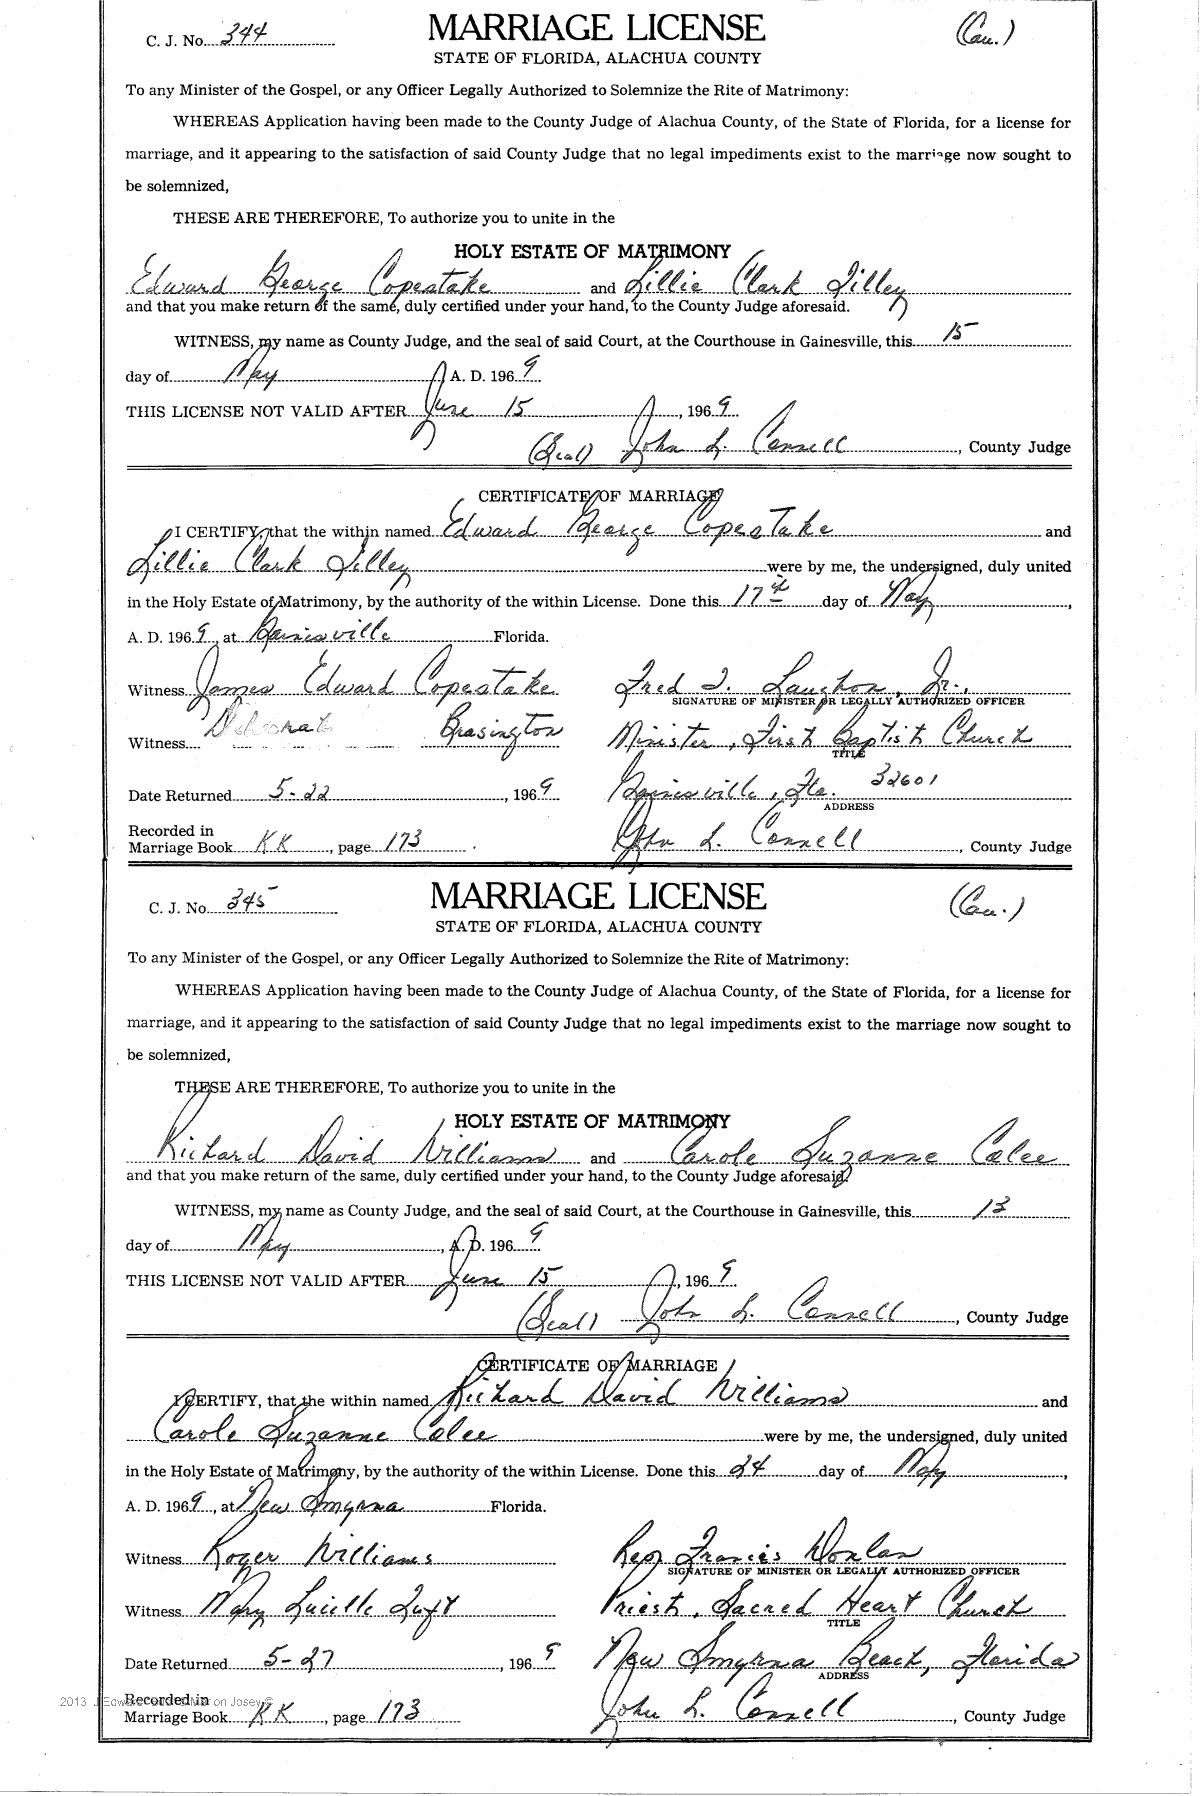 C. J. No. 344 MARRIAGE LICENSE (Cau.)
STATE OF FLORIDA, ALACHUA COUNTY
To any Minister of the Gospel, or any Officer Legally Authorized to Solemnize the Rite of Matrimony:
WHEREAS Application having been made to the County Judge of Alachua County, of the State of Florida, for a license for
marriage, and it appearing to the satisfaction of said County Judge that no legal impediments exist to the marriage now sought to
be solemnized,
THESE ARE THEREFORE, To authorize you to unite in the
HOLY ESTATE OF MATRIMONY
Edward George Copestake and Lillie Clark Tilley
and that you make return of the same, duly certified under your hand, to the County Judge aforesaid.
WITNESS, my name as County Judge, and the seal of said Court, at the Courthouse in Gainesville, this 15
day of May A. D. 1969
THIS LICENSE NOT VALID AFTER June 15, 1969
(Seal) John L. Connell, County Judge
CERTIFICATE OF MARRIAGE
I CERTIFY, that the within named Edward George Copestake and
Lillie Clark Tilley were by me, the undersigned, duly united
in the Holy Estate of Matrimony, by the authority of the within License. Done this 17th day of May,
A. D. 1969, at Gainesville Florida.
Witness James Edward Copestake Fred T. Laughon, Jr.,
SIGNATURE OF MINISTER OR LEGALLY AUTHORIZED OFFICER
Witness Deborah Brasington Minister, First Baptist Church
TITLE
Date Returned 5-22, 1969 Gainesville, Fla. 32601
ADDRESS
Recorded in
Marriage Book KK, page 173. John L. Connell, County Judge
C. J. No. 345 MARRIAGE LICENSE (Cau.)
STATE OF FLORIDA, ALACHUA COUNTY
To any Minister of the Gospel, or any Officer Legally Authorized to Solemnize the Rite of Matrimony:
WHEREAS Application having been made to the County Judge of Alachua County, of the State of Florida, for a license for
marriage, and it appearing to the satisfaction of said County Judge that no legal impediments exist to the marriage now sought to
be solemnized,
THESE ARE THEREFORE, To authorize you to unite in the
HOLY ESTATE OF MATRIMONY
Richard David Williams and Carole Suzanne Calee
and that you make return of the same, duly certified under your hand, to the County Judge aforesaid.
WITNESS, my name as County Judge, and the seal of said Court, at the Courthouse in Gainesville, this 13
day of May, A. D. 1969
THIS LICENSE NOT VALID AFTER June 15, 1969
(Seal) John L. Connell, County Judge
CERTIFICATE OF MARRIAGE
I CERTIFY, that the within named Richard David Williams and
Carole Suzanne Calee were by me, the undersigned, duly united
in the Holy Estate of Matrimony, by the authority of the within License. Done this 24 day of May,
A. D. 1969, at New Smyrna Florida.
Witness Roger Williams Rev. Francis Donlan
SIGNATURE OF MINISTER OR LEGALLY AUTHORIZED OFFICER
Witness Mary Lucille Luft Priest, Sacred Heart Church
TITLE
Date Returned 5-27, 1969 New Smyrna Beach, Florida
ADDRESS
Recorded in
Marriage Book KK, page 173 John L. Connell, County Judge